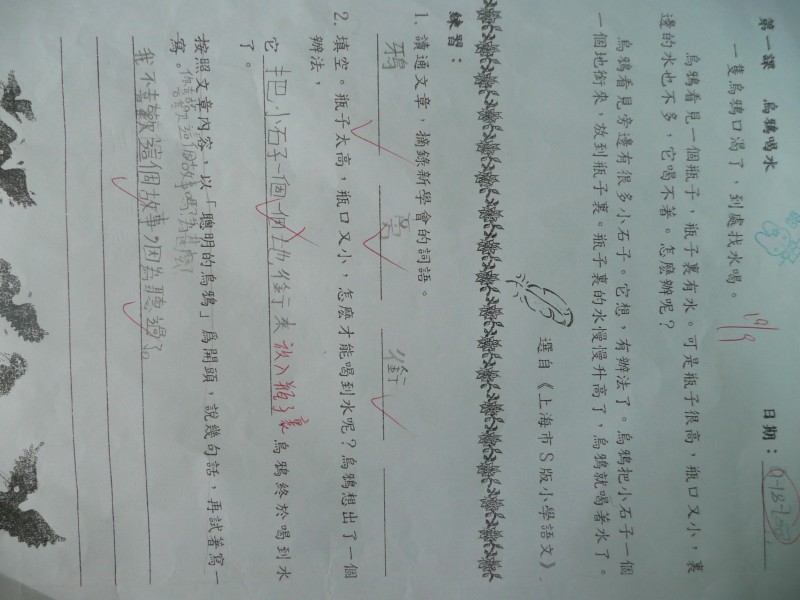 第一課 烏鴉喝水 日期：
一隻烏鴉口渴了，到處找水喝。 10/9
烏鴉看見一個瓶子，瓶子裏有水。可是瓶子很高，瓶口又小，裏
邊的水也不多，它喝不著。怎麼辦呢？
烏鴉看見旁邊有很多小石子。它想，有辦法了。烏鴉把小石子一個
一個地銜來，放到瓶子裏。瓶子裏的水慢慢升高了，烏鴉就喝著水了。
選自《上海市S版小學語文》.
練習：
1. 讀通文章，摘錄新學會的詞語。
鴉 銜
2. 填空。瓶子太高，瓶口又小，怎麼才能喝到水呢？烏鴉想出了一個
辦法，
它把小石子一個一個地銜來放入瓶子裏烏鴉終於喝到水
了。
按照文章內容，以「聰明的烏鴉」為開頭，說幾句話，再試著寫一
寫。
我不喜歡這個故事，因為聽過了。